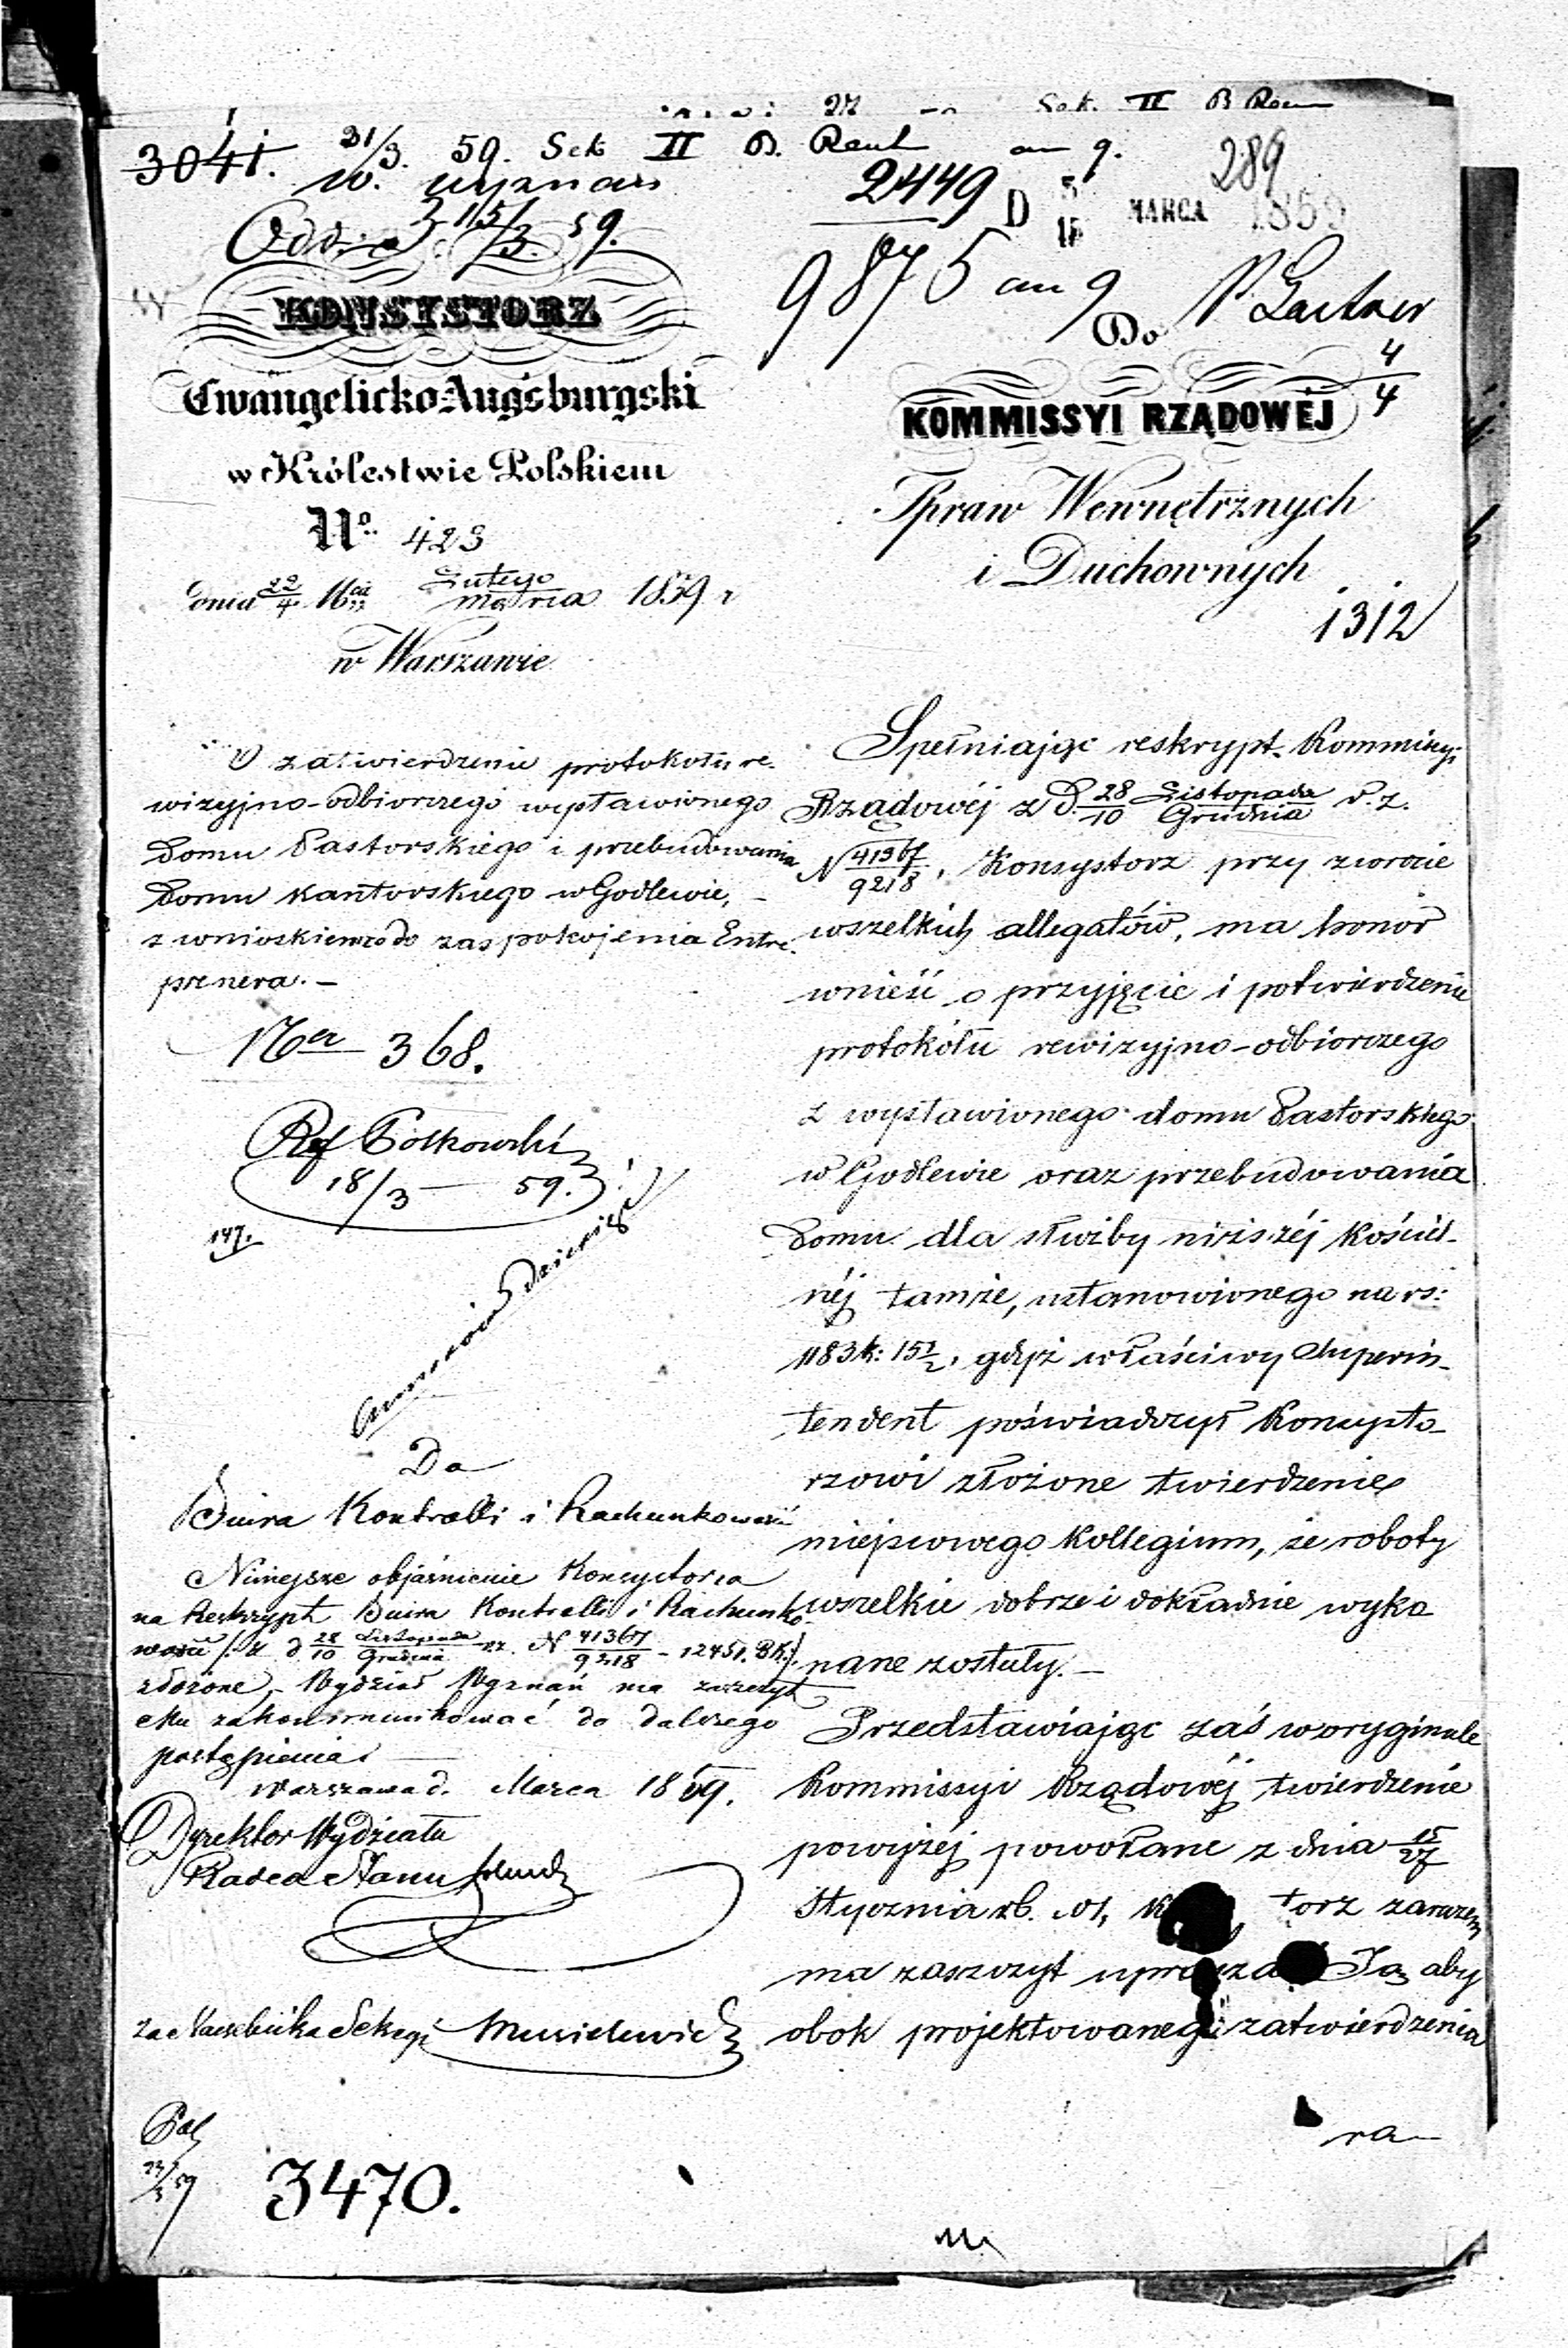 Sek. II B
3041. 31/3. 59. Sek II B.
2449
289
D 3/15 MARCA 1859
3 15/3. 59.
9875
KONSYSTORZ
Do
4/4
Ewangelicko-Augsburgski
KOMMISSYI RZĄDOWÉJ
w Królestwie Polskiem
Spraw Wewnętrznych
No. 423
i Duchownych
dnia Lutego Marca 1859 r
1312
w Warszawie
O zatwierdzenie protokołu re-
wizyjno-odbiorczego wystawionego
Domu Pastorskiego i przebudowania
Domu kantorskiego w Godlewie,
z wnioskiem co do zaspokojenia Entre-
prenera. —
Ner 368.
18/3 — 59.
147.
Do
Biura Kontrolli i Rachunkowości
Niniejsze objaśnienie Konsystorza
na Reskrypt Biura Kontrolli i Rachunko-
wości /: z d 28/10 Listopada/Grudnia r.z. N 41367/9218 - 12451. BK:/
złożone, Wydział Wyznań ma zaszczyt
Mu zakommunikować do dalszego
postąpienia. —
Warszawa d. Marca 1859.
Dyrektor Wydziału
Radca Stanu
Za Naczelnika Sekcyi
59
3470.
Spełniając reskrypt Kommissyi
Rządowéj z D. 28/10 Listopada/Grudnia r. z.
N 41367/9218, Konsystorz przy zwrocie
wszelkich allegatów, ma honor
wnieść o przyjęcie i potwierdzenie
protokółu rewizyjno-odbiorczego
z wystawionego domu Pastorskiego
w Godlewie oraz przebudowania
domu dla służby niższéj kościel-
néj tamże, ustanowionego na rs:
1183 k: 15½, gdyż właściwy Superin-
tendent poświadczył Konsysto-
rzowi złożone twierdzenie
miejscowego Kollegium, że roboty
wszelkie dobrze i dokładnie wyko
nane zostały. —
Przedstawiając zaś w oryginale
Kommissyi Rządowéj twierdzenie
powyżéj powołane z dnia 15/27
Stycznia r.b. K torz zarazem
ma zaszczyt upraszać Ją, aby
obok projektowanego zatwierdzenia
ra